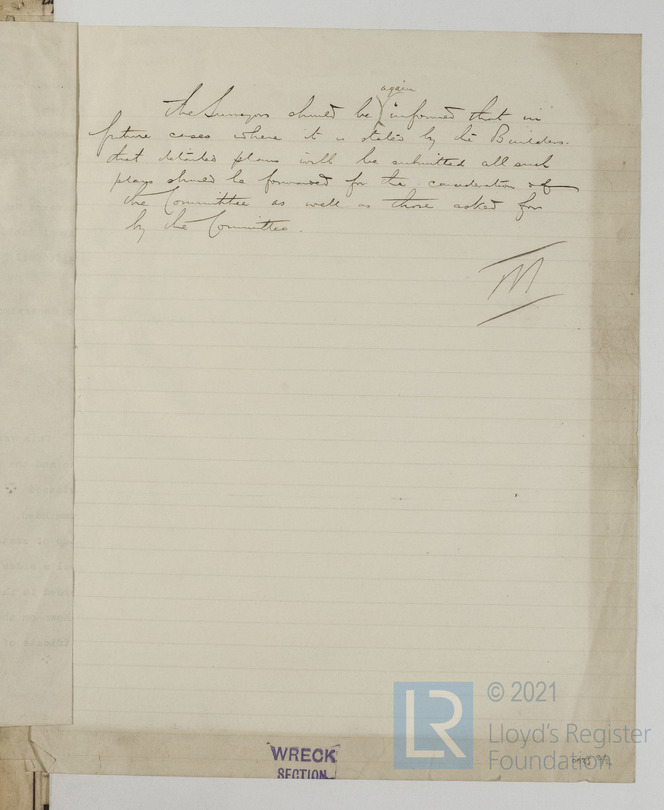 again
The Surveyors should be informed that in
future cases where it is stated by the Builders.
that detailed plans will be submitted all such
plans should be forwarded for the consideration of
the Committee as well as those asked for
by the Committee.
M
WRECK
SECTION
LR
© 2021
Lloyd's Register
Foundation